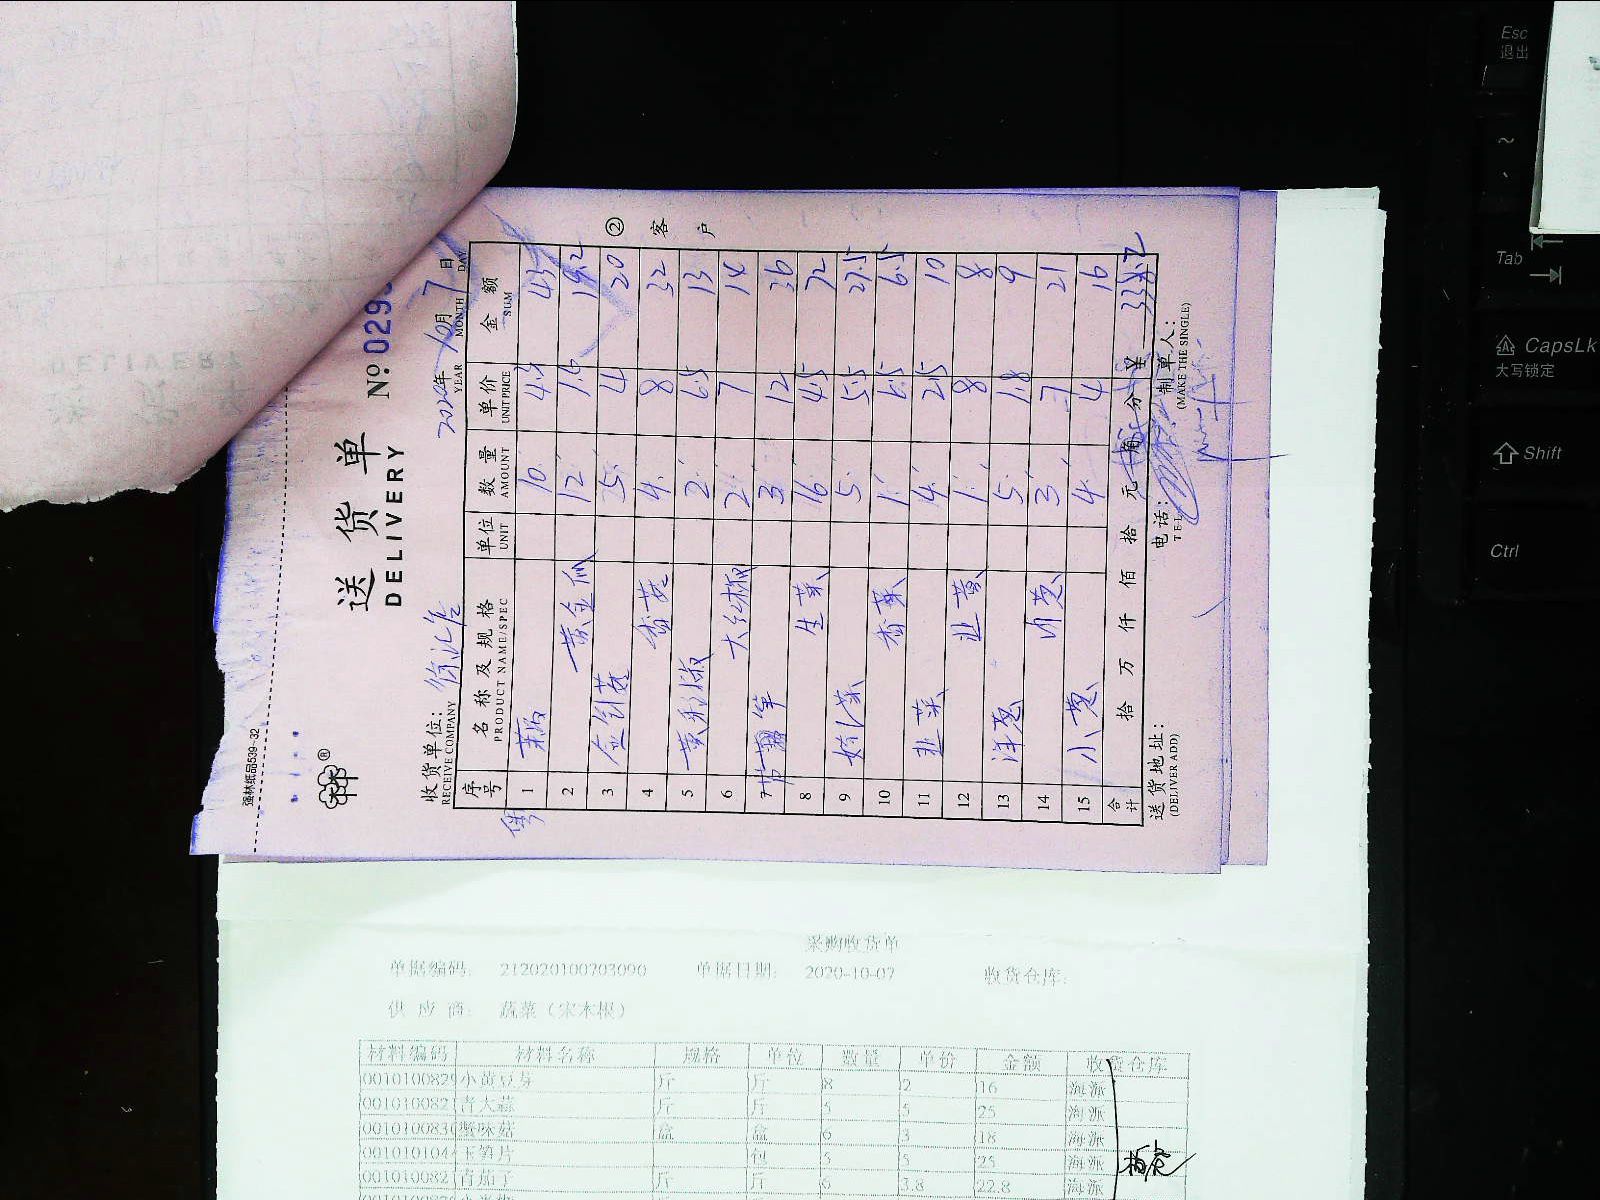 强林纸品539-32
送货单
DELIVERY
№ 029
收货单位：徐汇店 2020年 10月 7日
RECEIVE COMPANY YEAR MONTH DAY
序号 名称及规格 单位 数量 单价 金额
PRODUCT NAME/SPEC UNIT AMOUNT UNIT PRICE SUM
1 10 43
2 黄金瓜 12 1.6 19.2
3 金针菇 5 4 20
4 香菇 4 8 32
5 黄彩椒 2 6.5 13
6 大红椒 2 7 14
7 3 12 36
8 生菜 16 4.5 72
9 5 5.5 27.5
10 香菜 1 6.5 6.5
11 韭菜 4 2.5 10
12 韭黄 1 8 8
13 洋葱 5 1.8 9
14 3 7 21
15 小葱 4 4 16
合计 拾 万 仟 佰 拾 元 角 分 ¥
送货地址： 电话： 制单人：
(DELIVER ADD) TEL (MAKE THE SINGLE)
② 客户
采购收货单
单据编码: 212020100703090 单据日期: 2020-10-07 收货仓库:
供应商: 蔬菜（宋木根）
材料编码 材料名称 规格 单位 数量 单价 金额 收货仓库
001010082 小黄豆芽 斤 斤 8 2 16 海派
001010082 青大蒜 斤 斤 5 5 25 海派
001010083 蟹味菇 盒 盒 6 3 18 海派
001010104 玉笋片 包 5 5 25 海派
001010082 青茄子 斤 斤 6 3.8 22.8 海派
Esc
退出
Tab
CapsLk
大写锁定
Shift
Ctrl